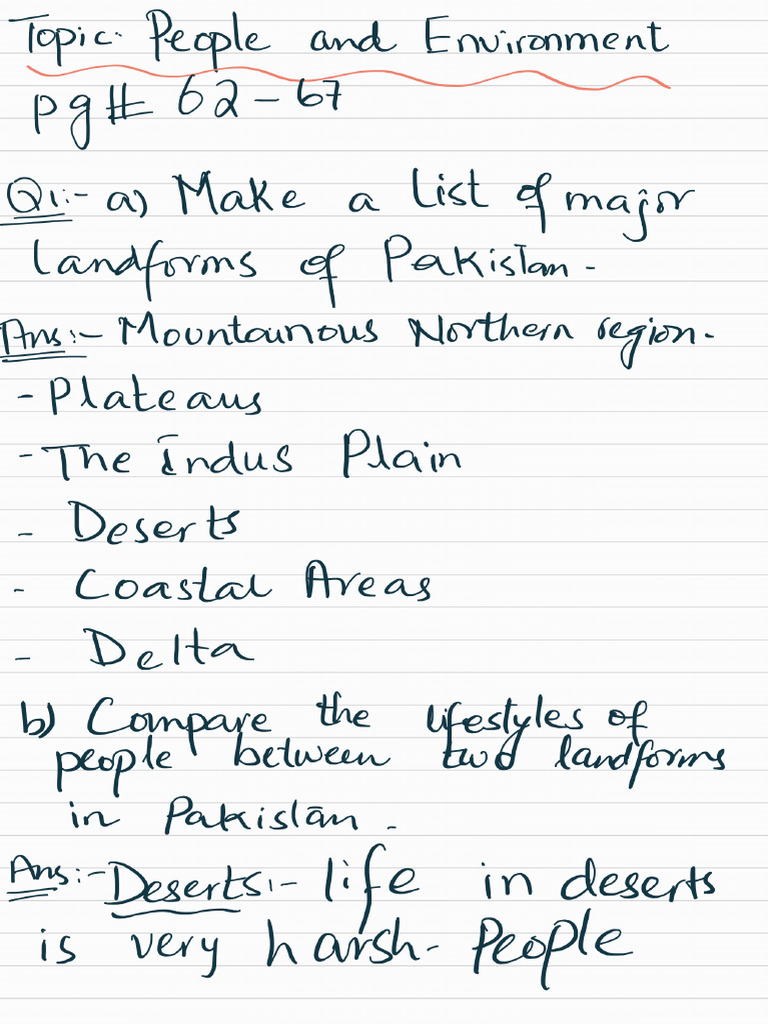 Topic: People and Environment
pg# 62-67
Q1:- a) Make a list of major
landforms of Pakistan-
Ans:- Mountainous Northern region.
- Plateaus
- The Indus Plain
- Deserts
- Coastal Areas
- Delta
b) Compare the lifestyles of
people between two landforms
in Pakistan-
Ans:- Deserts:- life in deserts
is very harsh- People